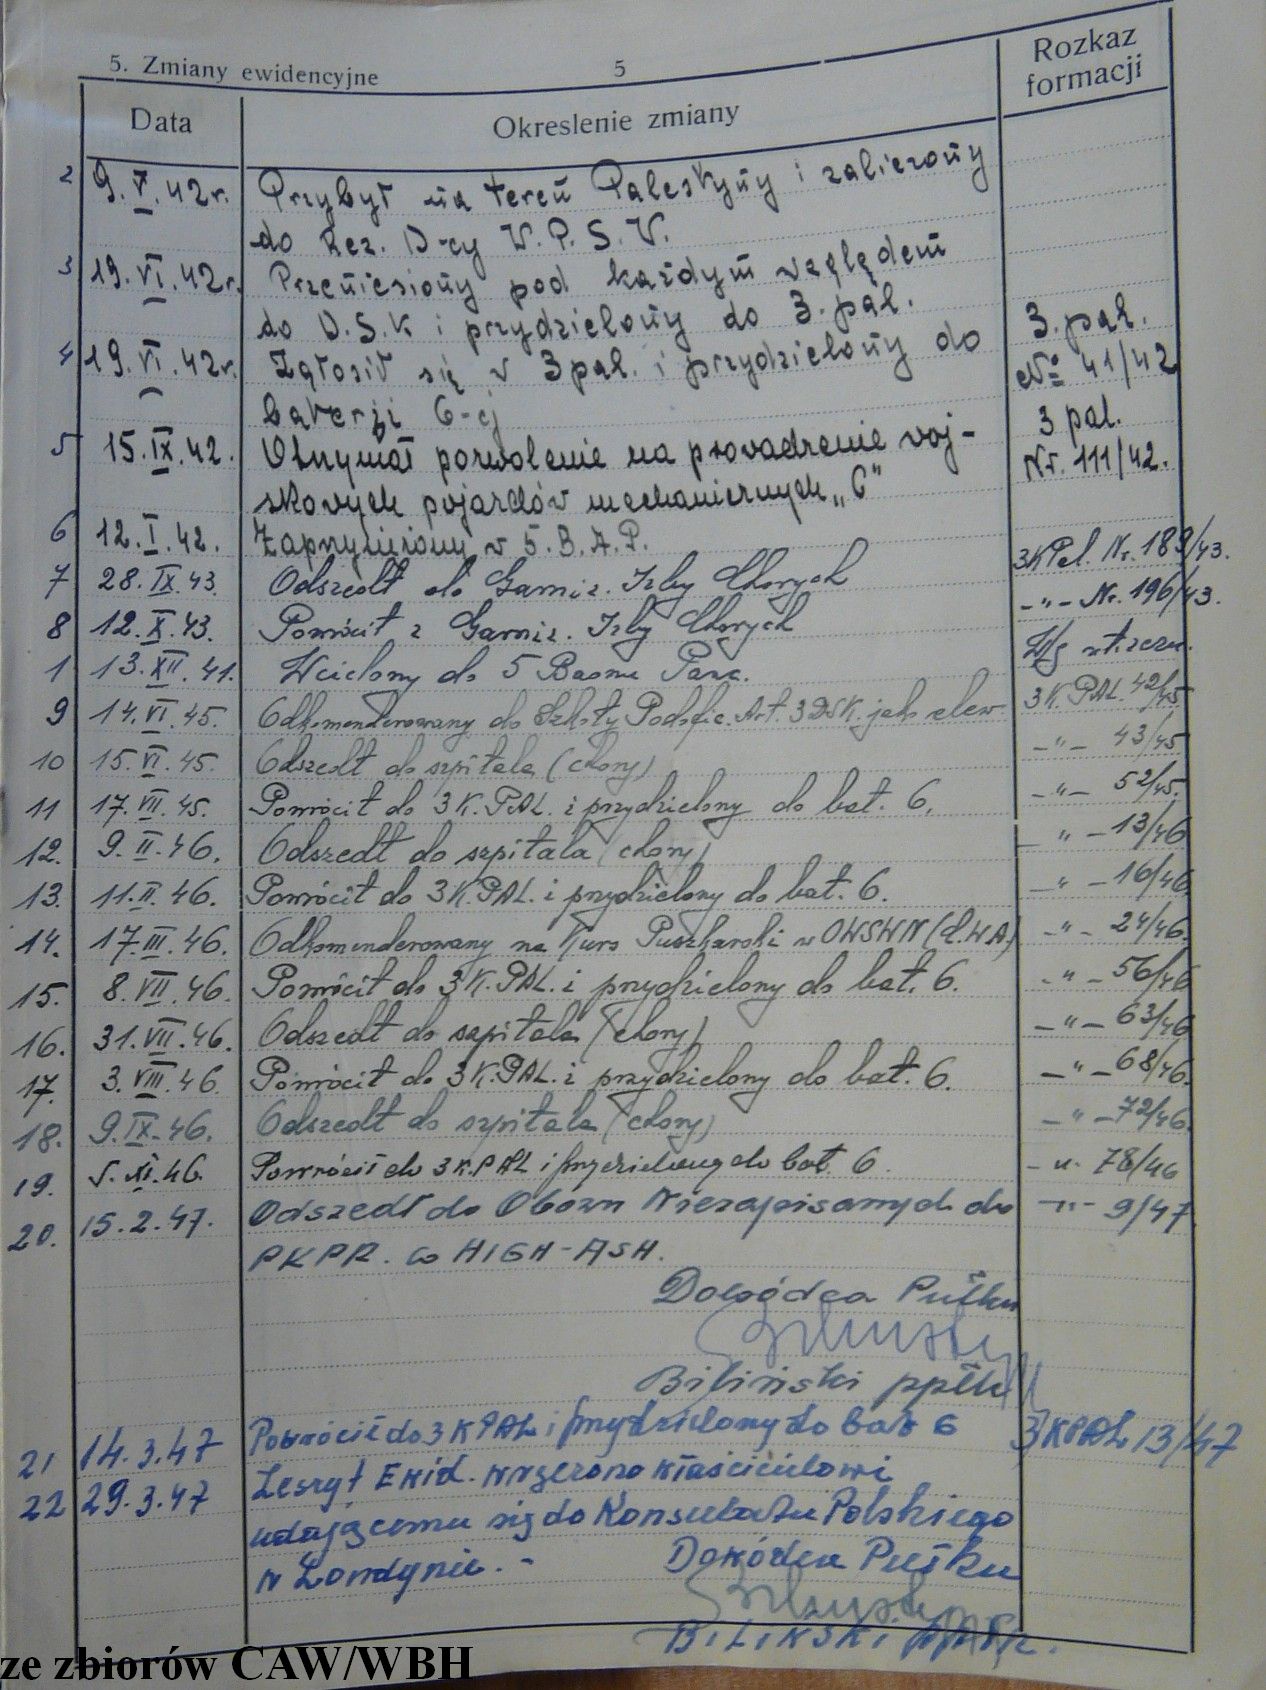 5. Zmiany ewidencyjne 5
Data Okreslenie zmiany Rozkaz formacji
2 9.V.42r. Przybył na tereń Palestyńy i zaliczońy
do Rez. D-cy W.P.S.W.
3 19.VI.42r. Przeńiesiońy pod każdym względem
do D.S.K i przydzielońy do 3.pal. 3.pal.
4 19.VI.42r. Zgłosił się w 3pal. i przydzielońy do № 41/42
baterji 6-ej 3 pal.
5 15.IX.42. Otrzymał pozwolenie na prowadzenie woj- Nr. 111/42.
skowych pojazdów mechanicznych „C"
6 12.I.42. Zaprzysiężony w 5.B.A.P. 3KPal. Nr. 189/43.
7 28.IX.43. Odszedł do Garniz. Izby Chorych -„- Nr. 196/43.
8 12.X.43. Powrócił z Garniz. Izby Chorych
1 13.XII.41. Wcielony do 5 Baonu Panc.
9 14.VI.45. Odkomenderowany do Szkoły Podofic. Art. 3DSK. jako elew 3K.PAL 42/45
10 15.VI.45. Odszedł do szpitala (chory) -„- 43/45
11 17.VII.45. Powrócił do 3K.PAL. i przydzielony do bat. 6. -„- 52/45.
12. 9.II.46. Odszedł do szpitala (chory) -„- 13/46
13. 11.II.46. Powrócił do 3K.PAL. i przydzielony do bat. 6. -„- 16/46
14. 17.III.46. Odkomenderowany na Kurs Puszkarski w OWSWN (C.W.A.) -„- 24/46.
15. 8.VII.46. Powrócił do 3K.PAL. i przydzielony do bat. 6. -„- 56/46
16. 31.VII.46. Odszedł do szpitala (chory) -„- 63/46
17. 3.VIII.46. Powrócił do 3K.PAL. i przydzielony do bat. 6. -„- 68/46.
18. 9.IX.46. Odszedł do szpitala (chory) -„- 72/46.
19. 5.XI.46. Powrócił do 3K.PAL i przydzielony do bat. 6. -„- 78/46
20. 15.2.47. Odszedł do Obozu Niezapisanych do -„- 9/47
PKPR. w HIGH-ASH.
Dowódca Pułku
Biliński ppłk
21 14.3.47 Powrócił do 3KPAL i przydzielony do bat 6 3KPAL 13/47
22 29.3.47 Zeszyt Ewid. wręczono właścicielowi
udającemu się do Konsulatu Polskiego
w Londynie. -
Dowódca Pułku
BILIŃSKI ppłk.
ze zbiorów CAW/WBH